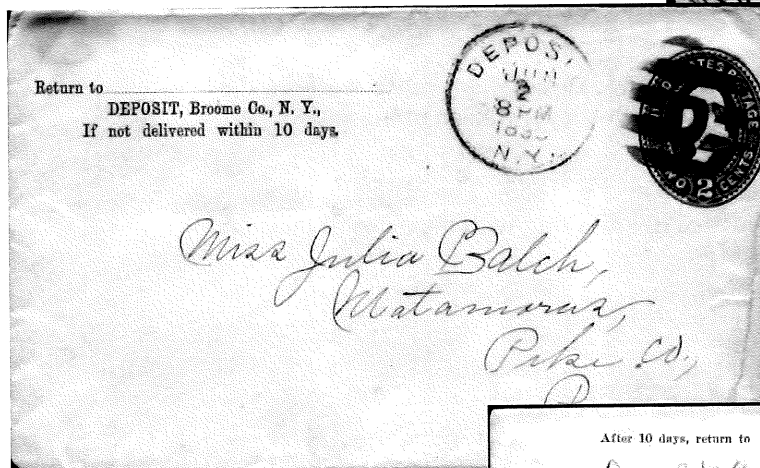 Return to
DEPOSIT, Broome Co., N. Y.,
If not delivered within 10 days.
DEPOS
JUN
2
8 PM
N.Y.
STATES POSTAGE
TWO 2 CENTS
Miss Julia Balch,
Matamoras,
Pike Co.,
After 10 days, return to